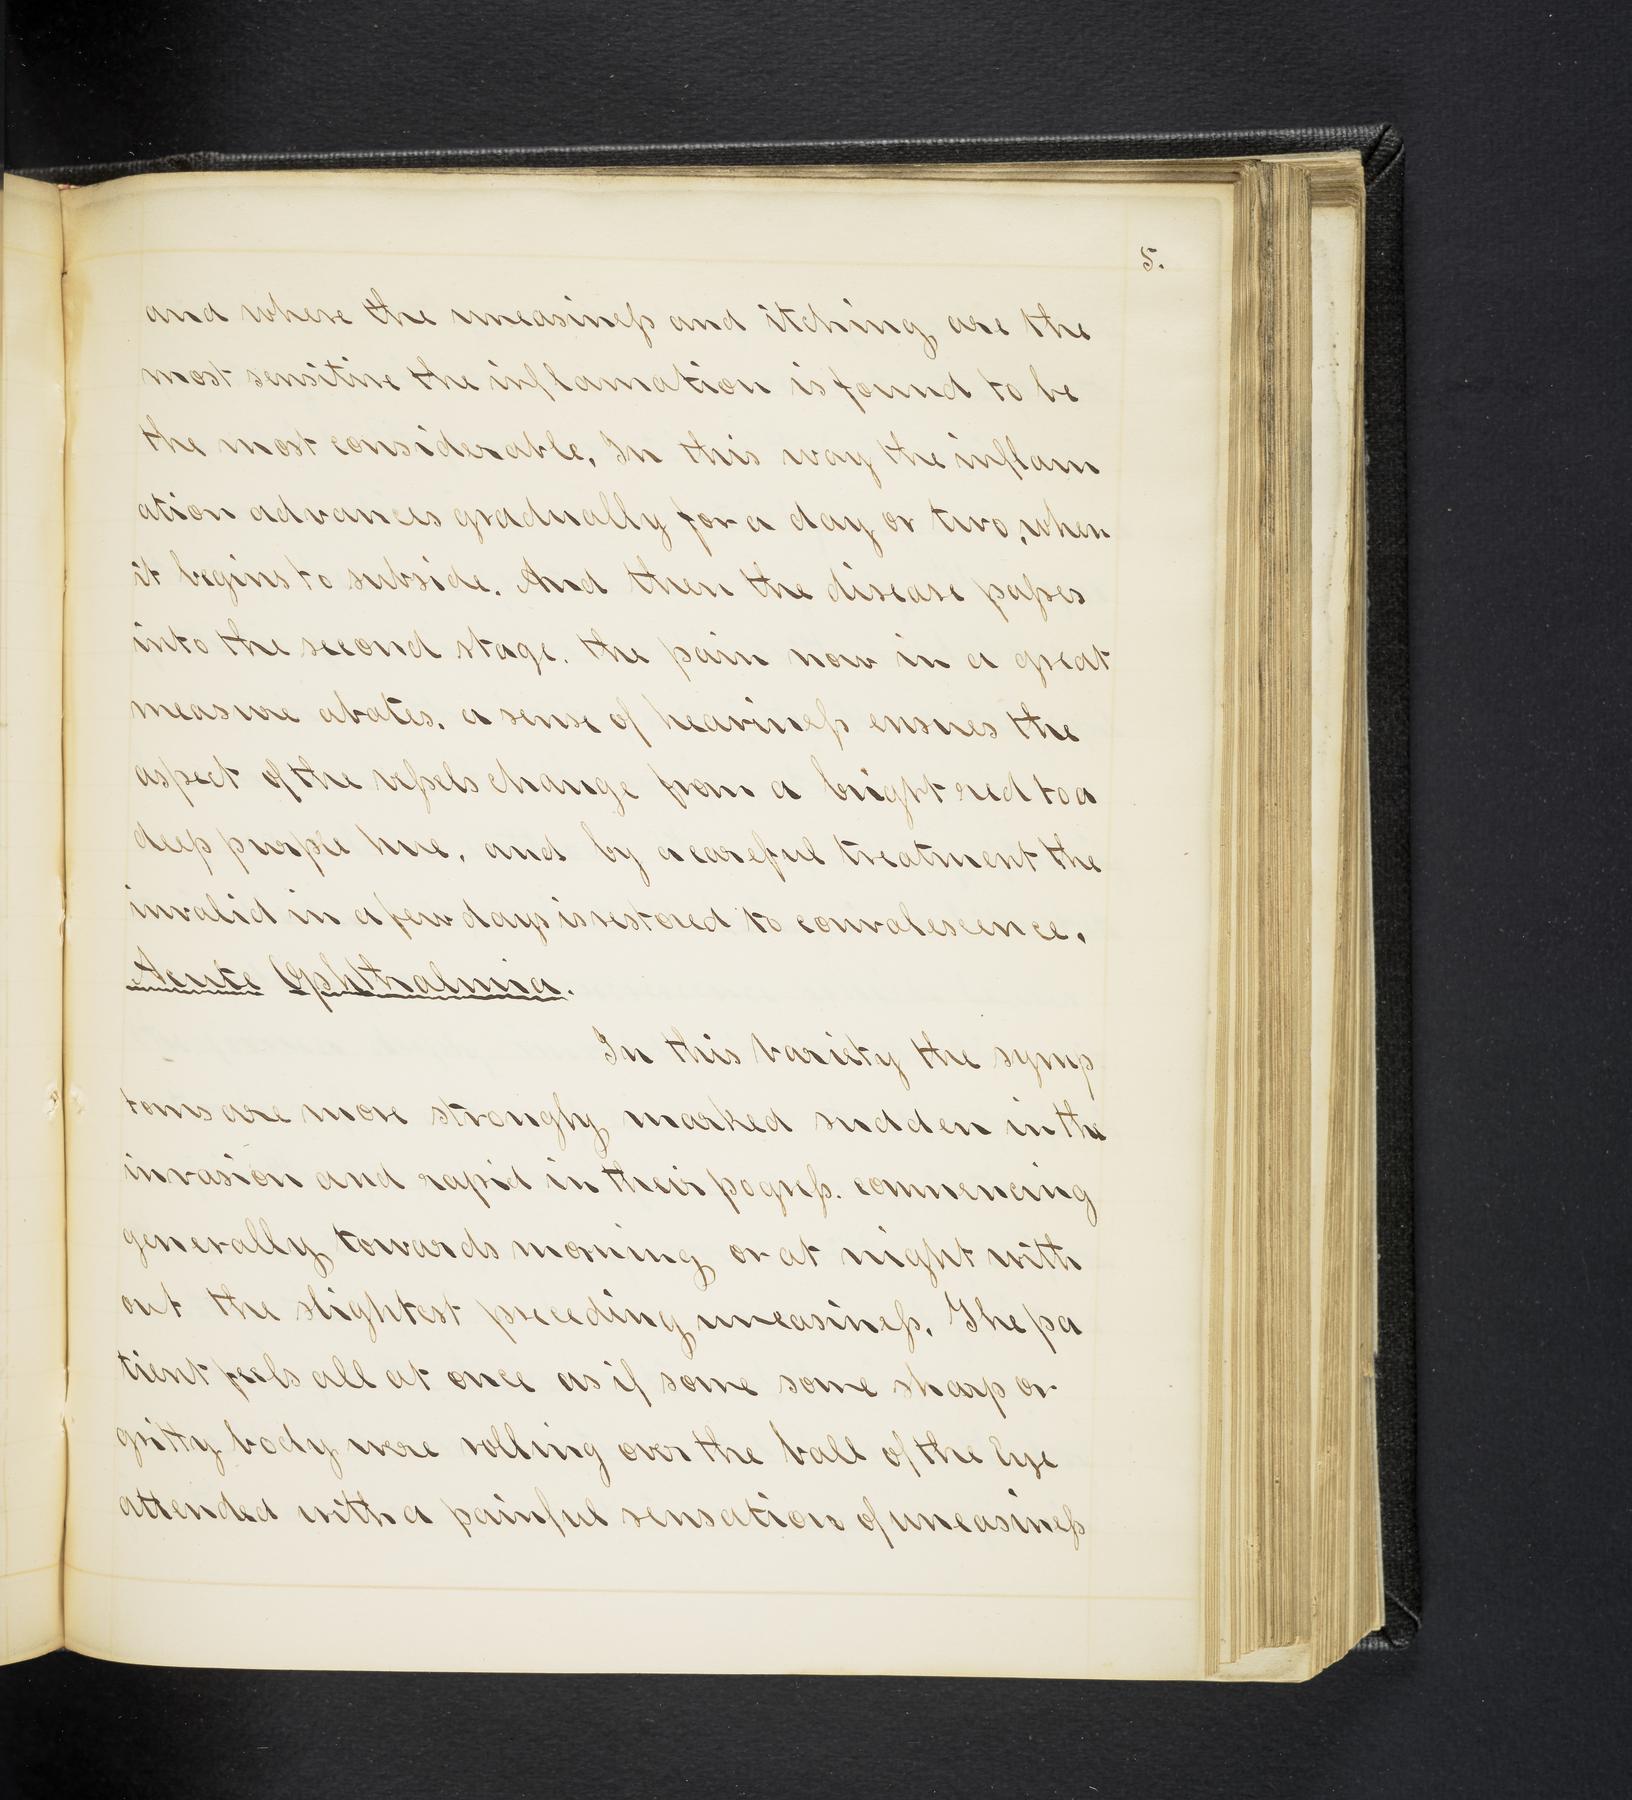 5.
and where the uneasiness and itching are the
most sensitive the inflamation is found to be
the most considerable, In this way the inflam
ation advances gradually for a day or two, when
it begins to subside. And then the disease passes
into the second stage. the pain now in a great
measure abates. a sense of heaviness ensues the
aspect of the vessels change from a bright red to a
deep purple hue, and by a careful treatment the
invalid in a few days is restored to convalescence.
Acute Ophthalmia.
In this variety the symp
toms are more strongly marked sudden in the
invasion and rapid in their pogress. commencing
generally towards morning or at night with
out the slightest preceding uneasiness. The pa
tient feels all at once as if some some sharp or
gritty body were rolling over the ball of the Eye
attended with a painful sensation of uneasiness